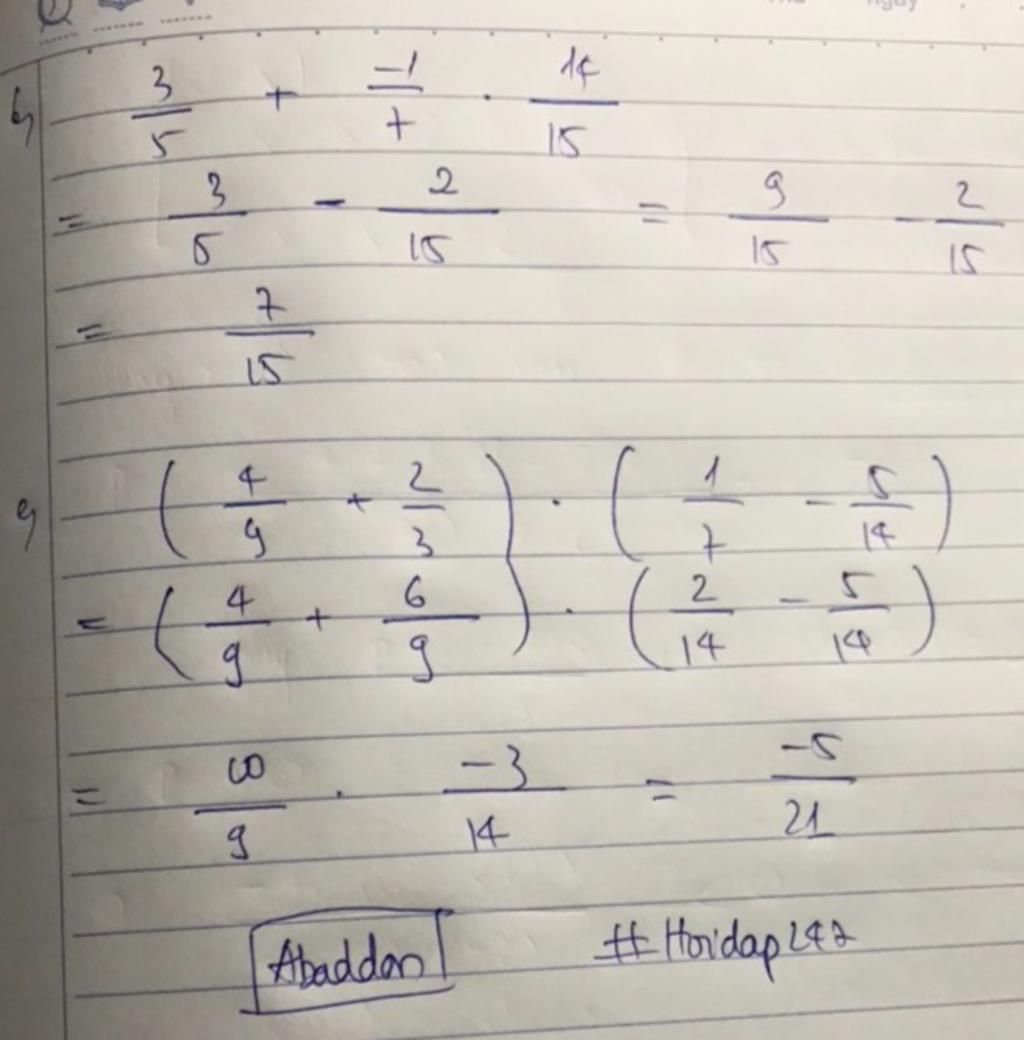 b) 3/5 + -1/7 . 14/15
= 3/5 - 2/15 = 9/15 - 2/15
= 7/15
c) (4/9 + 2/3) . (1/7 - 5/14)
= (4/9 + 6/9) . (2/14 - 5/14)
= 10/9 . -3/14 = -5/21
Abaddon #Hoidap247